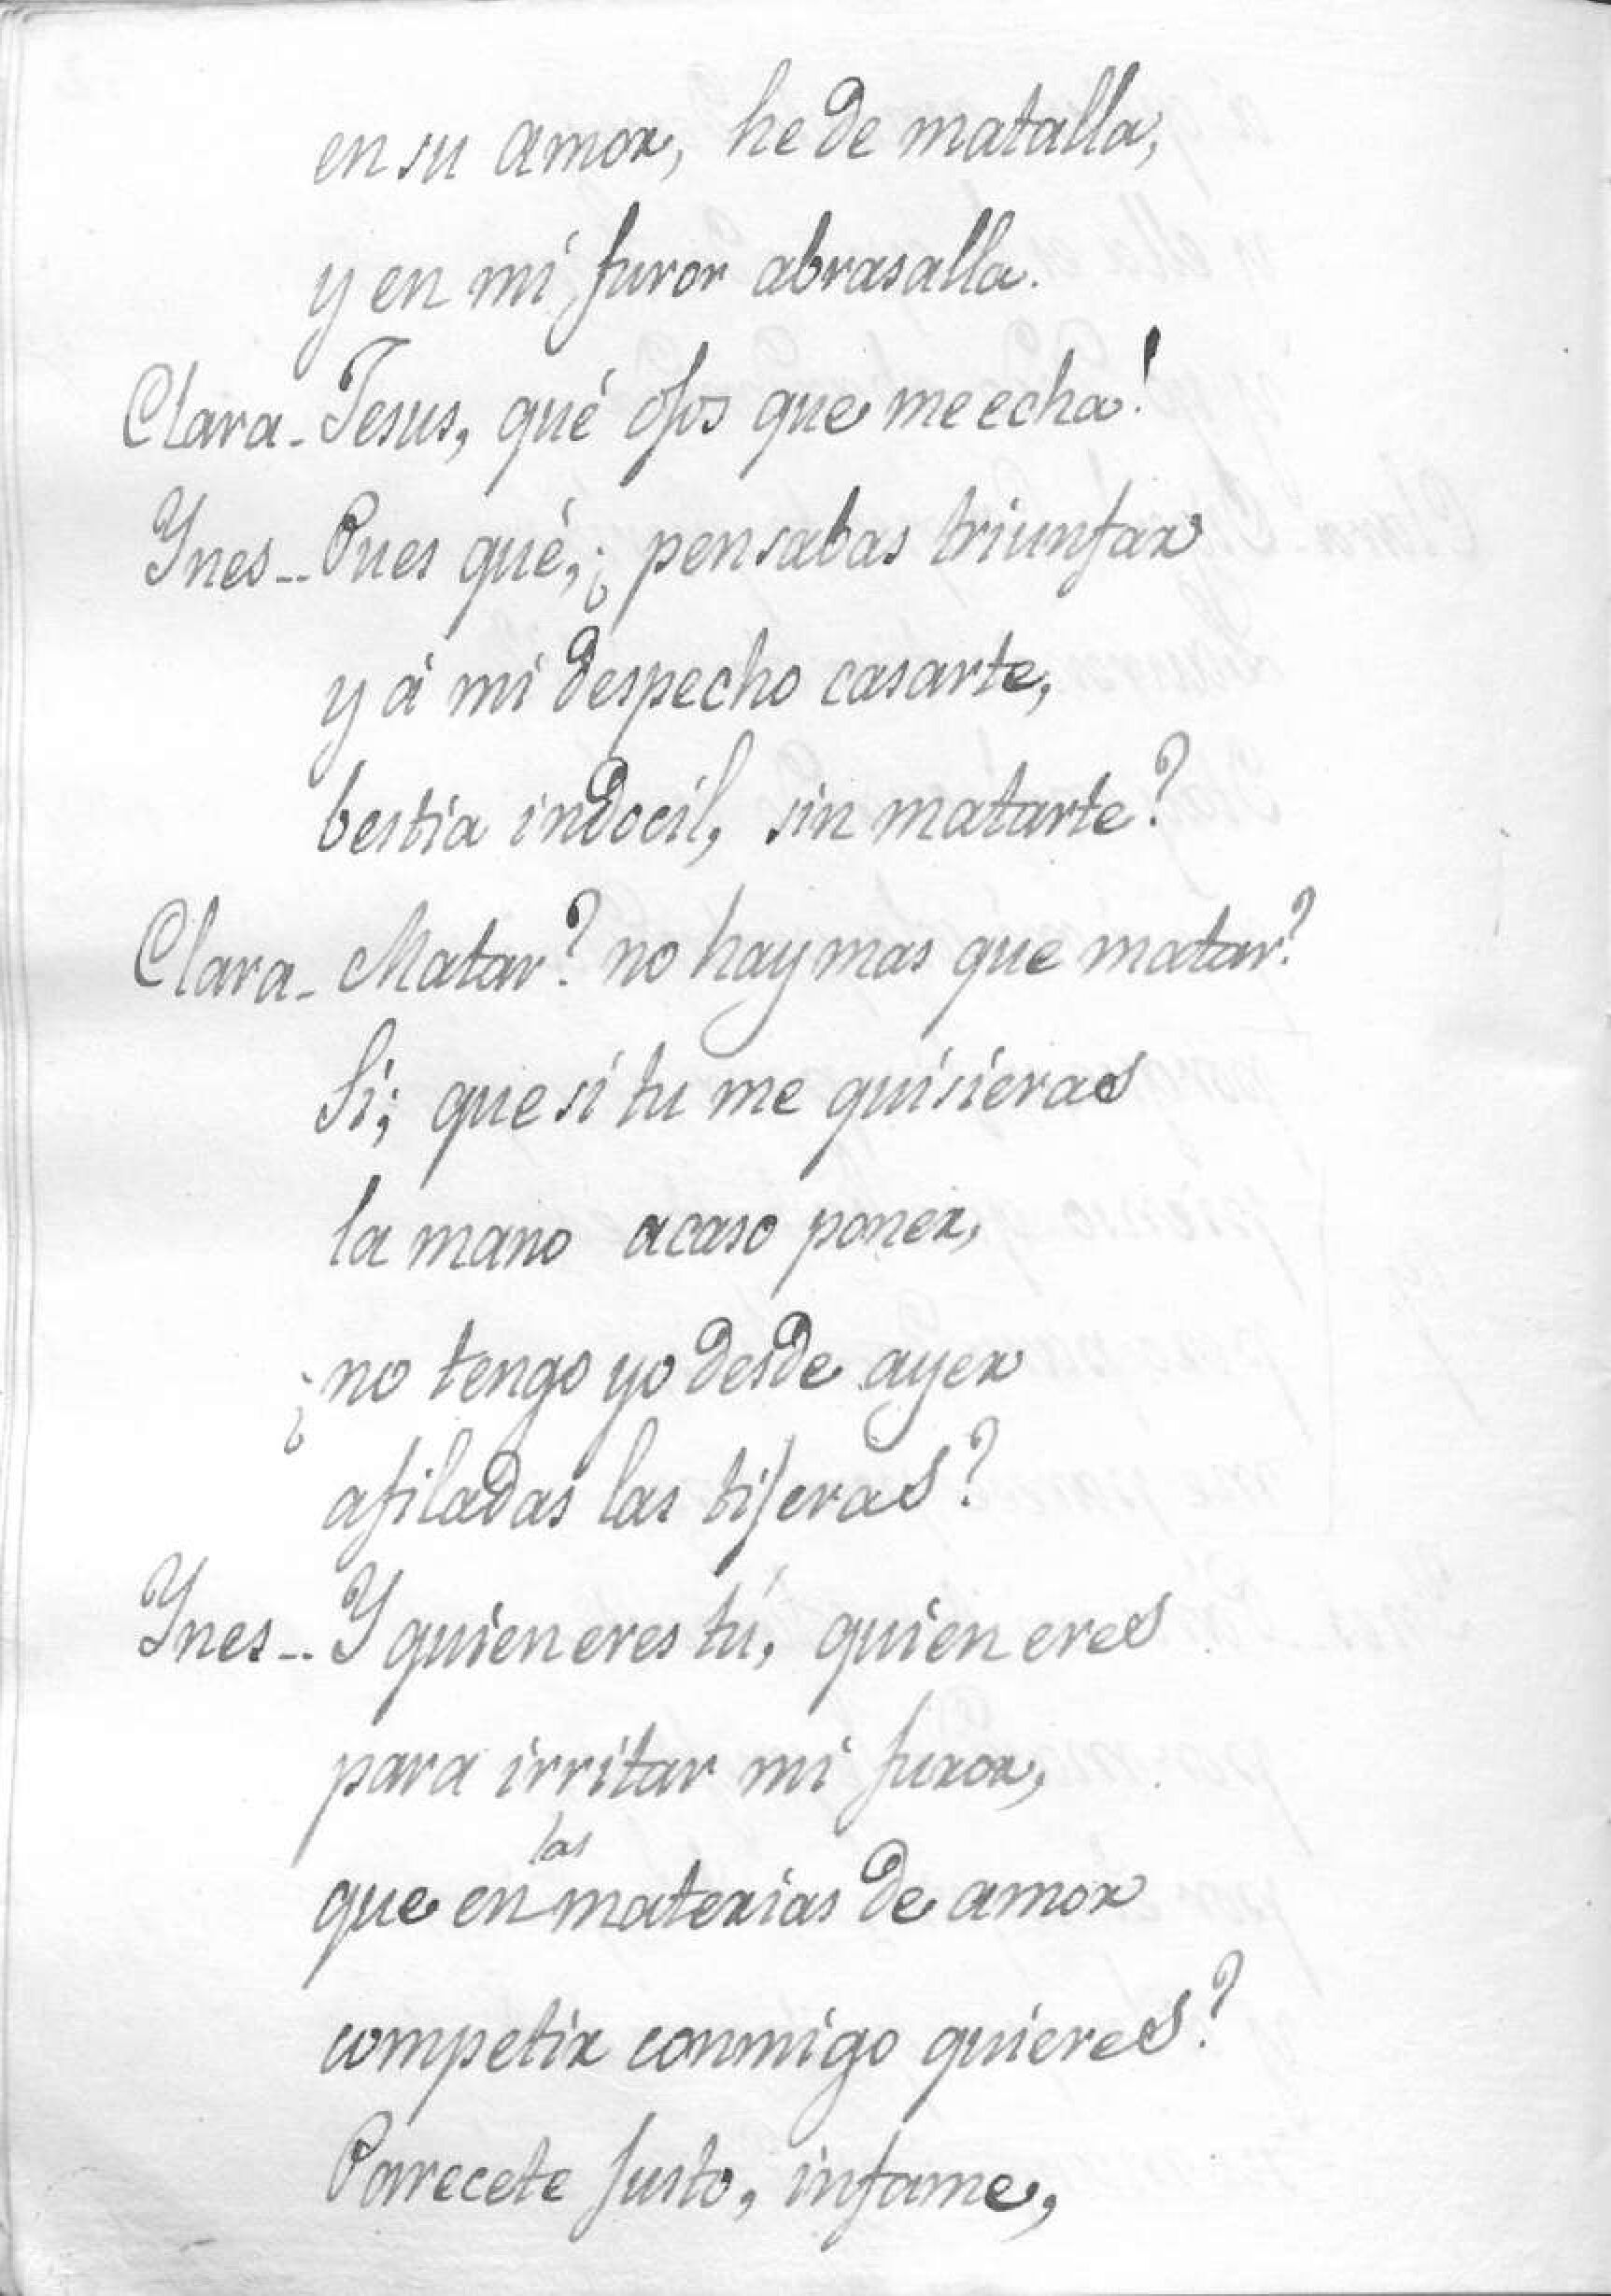 en su amor, he de matalla,
y en mi furor abrasalla.
Clara - Jesus, qué ojos que me echa!
Ynes -- Pues qué, ¿ pensabas triunfar
y á mi despecho casarte,
bestia indocil, sin matarte?
Clara - Matar? no hay mas que matar?
Si; que si tu me quisieras
la mano acaso poner,
¿no tengo yo desde ayer
afiladas las tijeras?
Ynes -- Y quien eres tú, quien eres
para irritar mi furor,
las
que en materias de amor
competir conmigo quieres?
Parecete justo, infame,